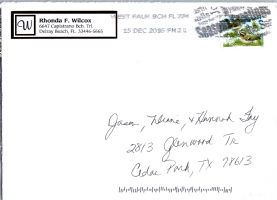 W
Rhonda F. Wilcox
6647 Capistrano Bch. Trl.
Delray Beach, FL 33446-5665
WEST PALM BCH FL 334
15 DEC 2016 PM 2 L
Jason, Diane, & Hannah Fay
2813 Glenwood Tr
Cedar Park, TX 78613